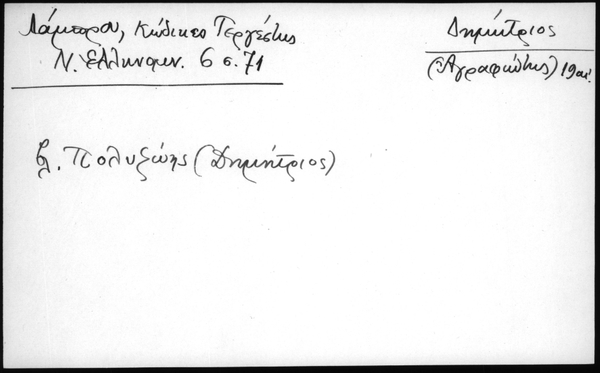 Λάμπρου, Κώδικες Τεργέστης
Ν. Ἑλληνομν. 6 σ. 71
Δημήτριος
(Ἀγραφιώτης) 19 αἰ.
βλ. Πολυζώης (Δημήτριος)